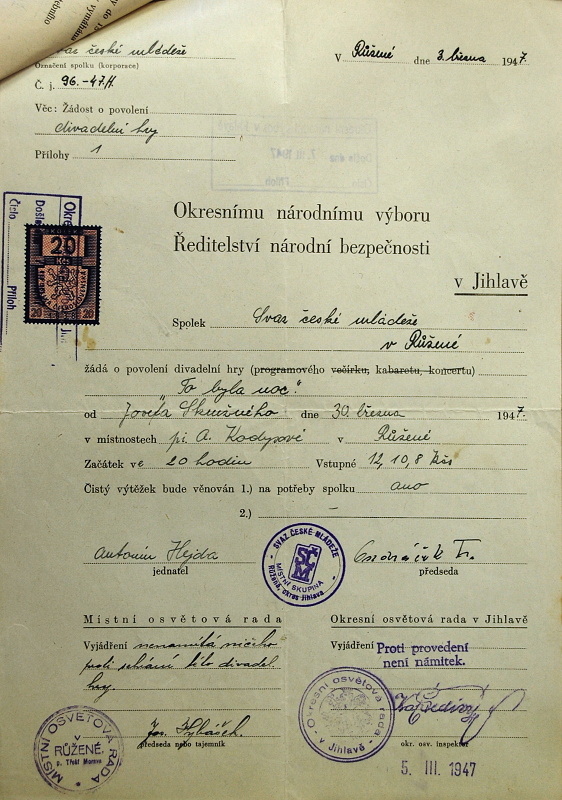 Svaz české mládeže
Označení spolku (korporace)
V Růžené dne 3. března 1947.
Č. j. 96.-47/H.
Věc: Žádost o povolení
divadelní hry
Přílohy 1
7. III 1947
Okresnímu národnímu výboru
Ředitelství národní bezpečnosti
v Jihlavě
Číslo Příloh
20
Kčs
20 20
Spolek Svaz české mládeže
v Růžené
žádá o povolení divadelní hry (programového večírku, kabaretu, koncertu)
"To byla noc".
od Josefa Skružného dne 30. března 1947.
v místnostech pí. A. Kodysové v Růžené
Začátek ve 20 hodin Vstupné 12, 10, 8 Kčs
Čistý výtěžek bude věnován 1.) na potřeby spolku ano
2.) –
SVAZ ČESKÉ MLÁDEŽE
SČM
MÍSTNÍ SKUPINA
Růžená, okres Jihlava
Antonín Hejda
jednatel
předseda
Místní osvětová rada
Okresní osvětová rada v Jihlavě
Vyjádření nenamítá ničeho
proti sehrání této divadel.
hry.
Vyjádření Proti provedení
není námitek.
MÍSTNÍ OSVĚTOVÁ RADA
V
RŮŽENÉ,
p. Třešť Morava
Jos.
předseda nebo tajemník
Okresní osvětová rada
v Jihlavě
okr. osv. inspektor
5. III. 1947